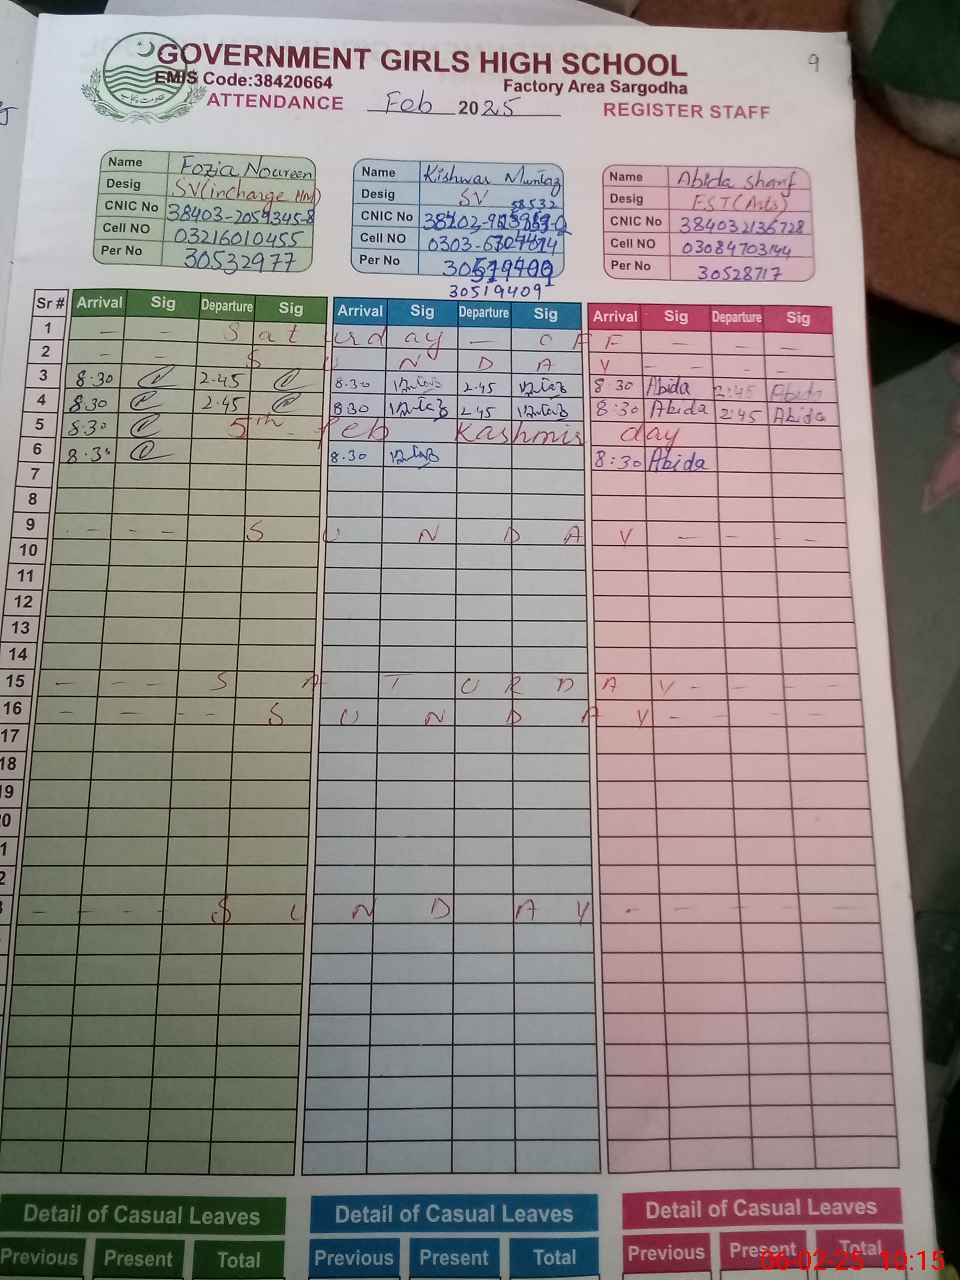 9
GOVERNMENT GIRLS HIGH SCHOOL
EMIS Code:38420664 Factory Area Sargodha
ATTENDANCE Feb 2025 REGISTER STAFF
Name Fozia Noureen
Desig SV(incharge HM)
CNIC No 38403-2059345-8
Cell NO 03216010455
Per No 30532977
Name Kishwar Mumtaz
Desig SV
CNIC No
Cell NO
Per No
30519409
Name Abida Sharif
Desig EST(Arts)
CNIC No 384032136728
Cell NO 03084703144
Per No 30528717
Sr # Arrival Sig Departure Sig Arrival Sig Departure Sig Arrival Sig Departure Sig
1 - - Saturday - OFF - - -
2 - - SUNDAY - - - -
3 8.30 2.45 8.30 2.45 8:30 Abida 2:45 Abida
4 8.30 2.45 8.30 2.45 8:30 Abida 2:45 Abida
5 8.30 5th Feb Kashmir day
6 8.30 8.30 8:30 Abida
7
8
9 - - - - SUNDAY - - - -
10
11
12
13
14
15 - - - SATURDAY - - - -
16 - - - - SUNDAY - - - -
17
18
19
20
1
2
3 - - - - SUNDAY - - - - -
Detail of Casual Leaves Detail of Casual Leaves Detail of Casual Leaves
Previous Present Total Previous Present Total Previous Present Total
06-02-25 10:15